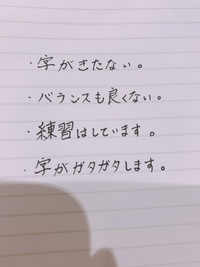 ・字がきたない。
・バランスも良くない。
・練習はしています。
・字がガタガタします。